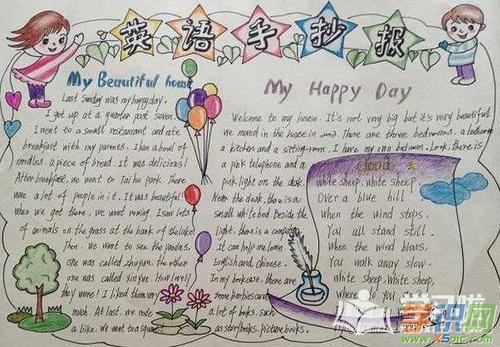 英语手抄报
My Beautiful house
Last Sunday was my happy day.
I got up at a quarter past seven.
I went to a small restaurant and ate
breakfast with my parents. I had a bowl of
noodles, a piece of bread. It was delicious!
After breakfast, we went to Tai hu park. There
were a lot of people in it. It was beautiful!
When we got there, we went rowing. I saw lots
of animals on the grass at the bank of the lake.
Then, we went to see the pandas,
one was called and the other
one was called xin yue. How lovely
they were! I liked them very
much. At last, we rode
a bike. We went to a square
My Happy Day
Welcome to my house. It's not very big, but it's very beautiful
we moved in the house in There are three bedrooms, a bathroom
a kitchen and a sitting-room. I have my own bedroom. Look, there is
a pink telephone and a
pink light on the desk.
Near the desk, there is a
small white bed. Beside the
light, there is a computer
It can help me learn
English and chinese.
In my bookcase, there are
some barbies and
a lot of books, such
as storybooks, picture books.
cloud 云
white sheep, white sheep
Over a blue hill
When the wind stops,
You all stand still.
When the wind blows,
You walk away slow.
White sheep, White sheep,
Where do you
学识网
xspic.com